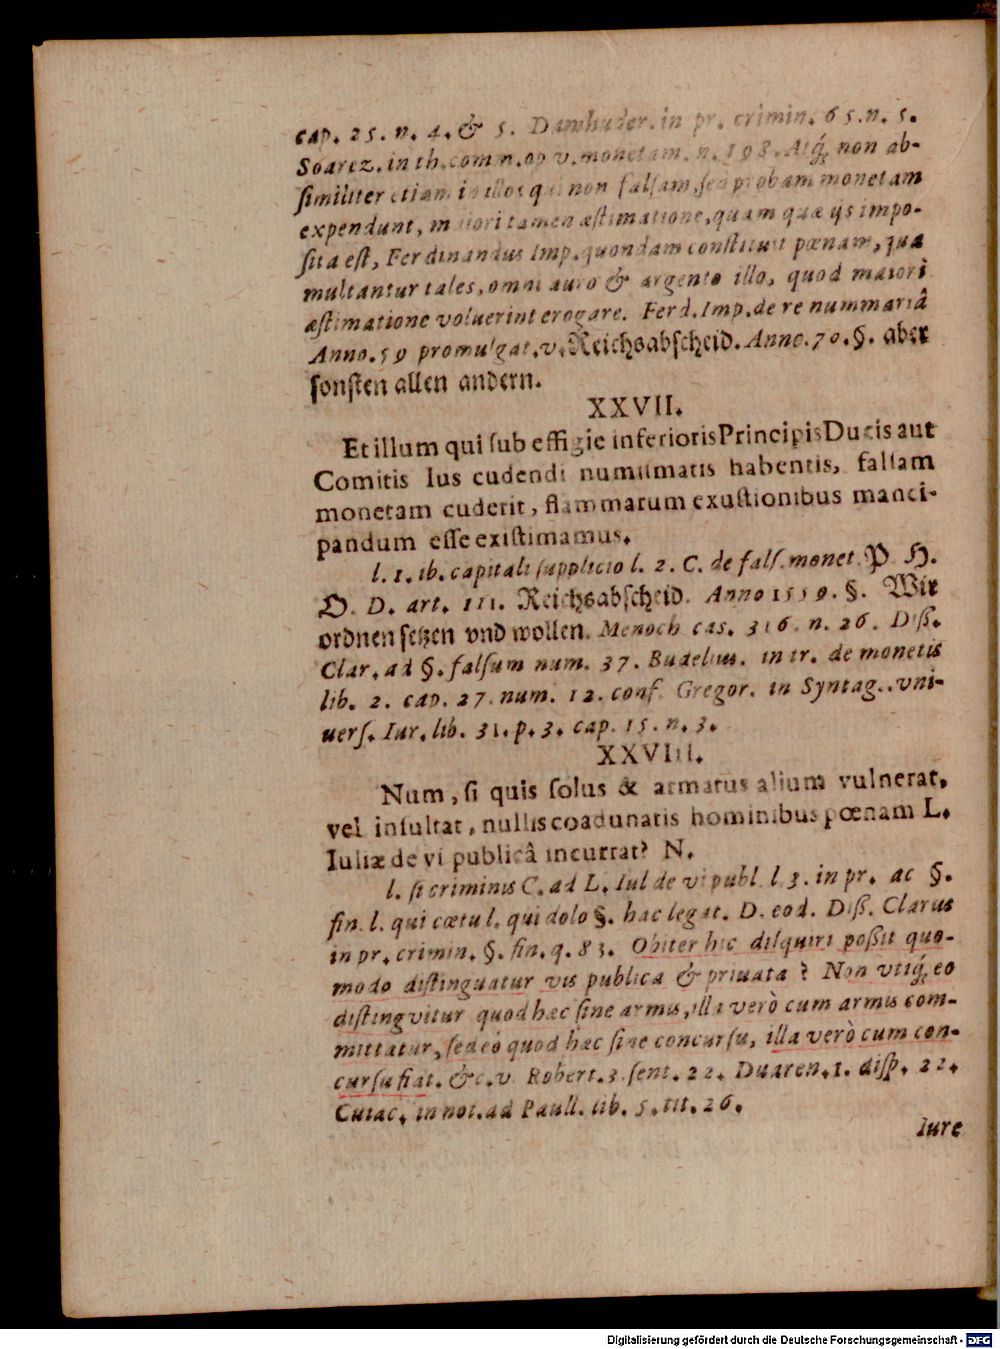 cap. 25. n. 4. & 5. Damhuder. in pr. crimin. 65. n. 5.
Soarez. in th. comm. op v. monetam. n. 198. Atq; non ab-
similiter etiam in illos qui non falsam, sed probam monetam
expendunt, maiori tamen æstimatione, quam quæ ijs impo-
sita est, Ferdinandus Imp. quondam constituit pœnam, qua
multantur tales, omni auro & argento illo, quod maiori
æstimatione voluerint erogare. Ferd. Imp. de re nummariâ
Anno. 59 promulgat. v. Reichsabscheid. Anno. 70. §. aber
sonsten allen andern.
XXVII.
Et illum qui sub effigie inferioris Principis Ducis aut
Comitis Ius cudendi numismatis habentis, falsam
monetam cuderit, flammarum exustionibus manci-
pandum esse existimamus.
l. 1. ib. capitali supplicio l. 2. C. de fals. monet. P. H.
O. D. art. 111. Reichsabscheid. Anno 1559. §. Wir
ordnen setzen vnd wollen. Menoch cas. 316. n. 26. Diss.
Clar. ad §. falsum num. 37. Budelius. in tr. de monetis
lib. 2. cap. 27. num. 12. conf. Gregor. in Syntag. vni-
vers. Iur. lib. 31. p. 3. cap. 15. n. 3.
XXVIII.
Num, si quis solus & armatus alium vulnerat,
vel insultat, nullis coadunatis hominibus pœnam L.
Iuliæ de vi publicâ incurrat? N.
l. si criminis C. ad L. Iul de vi publ. l. 3. in pr. ac §.
fin. l. qui cœtu l. qui dolo §. hac legat. D. eod. Diss. Clarus
in pr. crimin. §. fin. q. 83. Obiter hic disquiri possit quo-
modo distinguatur vis publica & priuata? Non vtiq; eo
distingvitur quod hæc sine armis, illa verò cum armis com-
mittatur, sed eò quod hæc sine concursu, illa verò cum con-
cursu fiat. &c. v. Robert. 3. sent. 22. Duaren. 1. disp. 22.
Cuiac. in not. ad Paull. lib. 5. tit. 26.
Iure
Digitalisierung gefördert durch die Deutsche Forschungsgemeinschaft - DFG